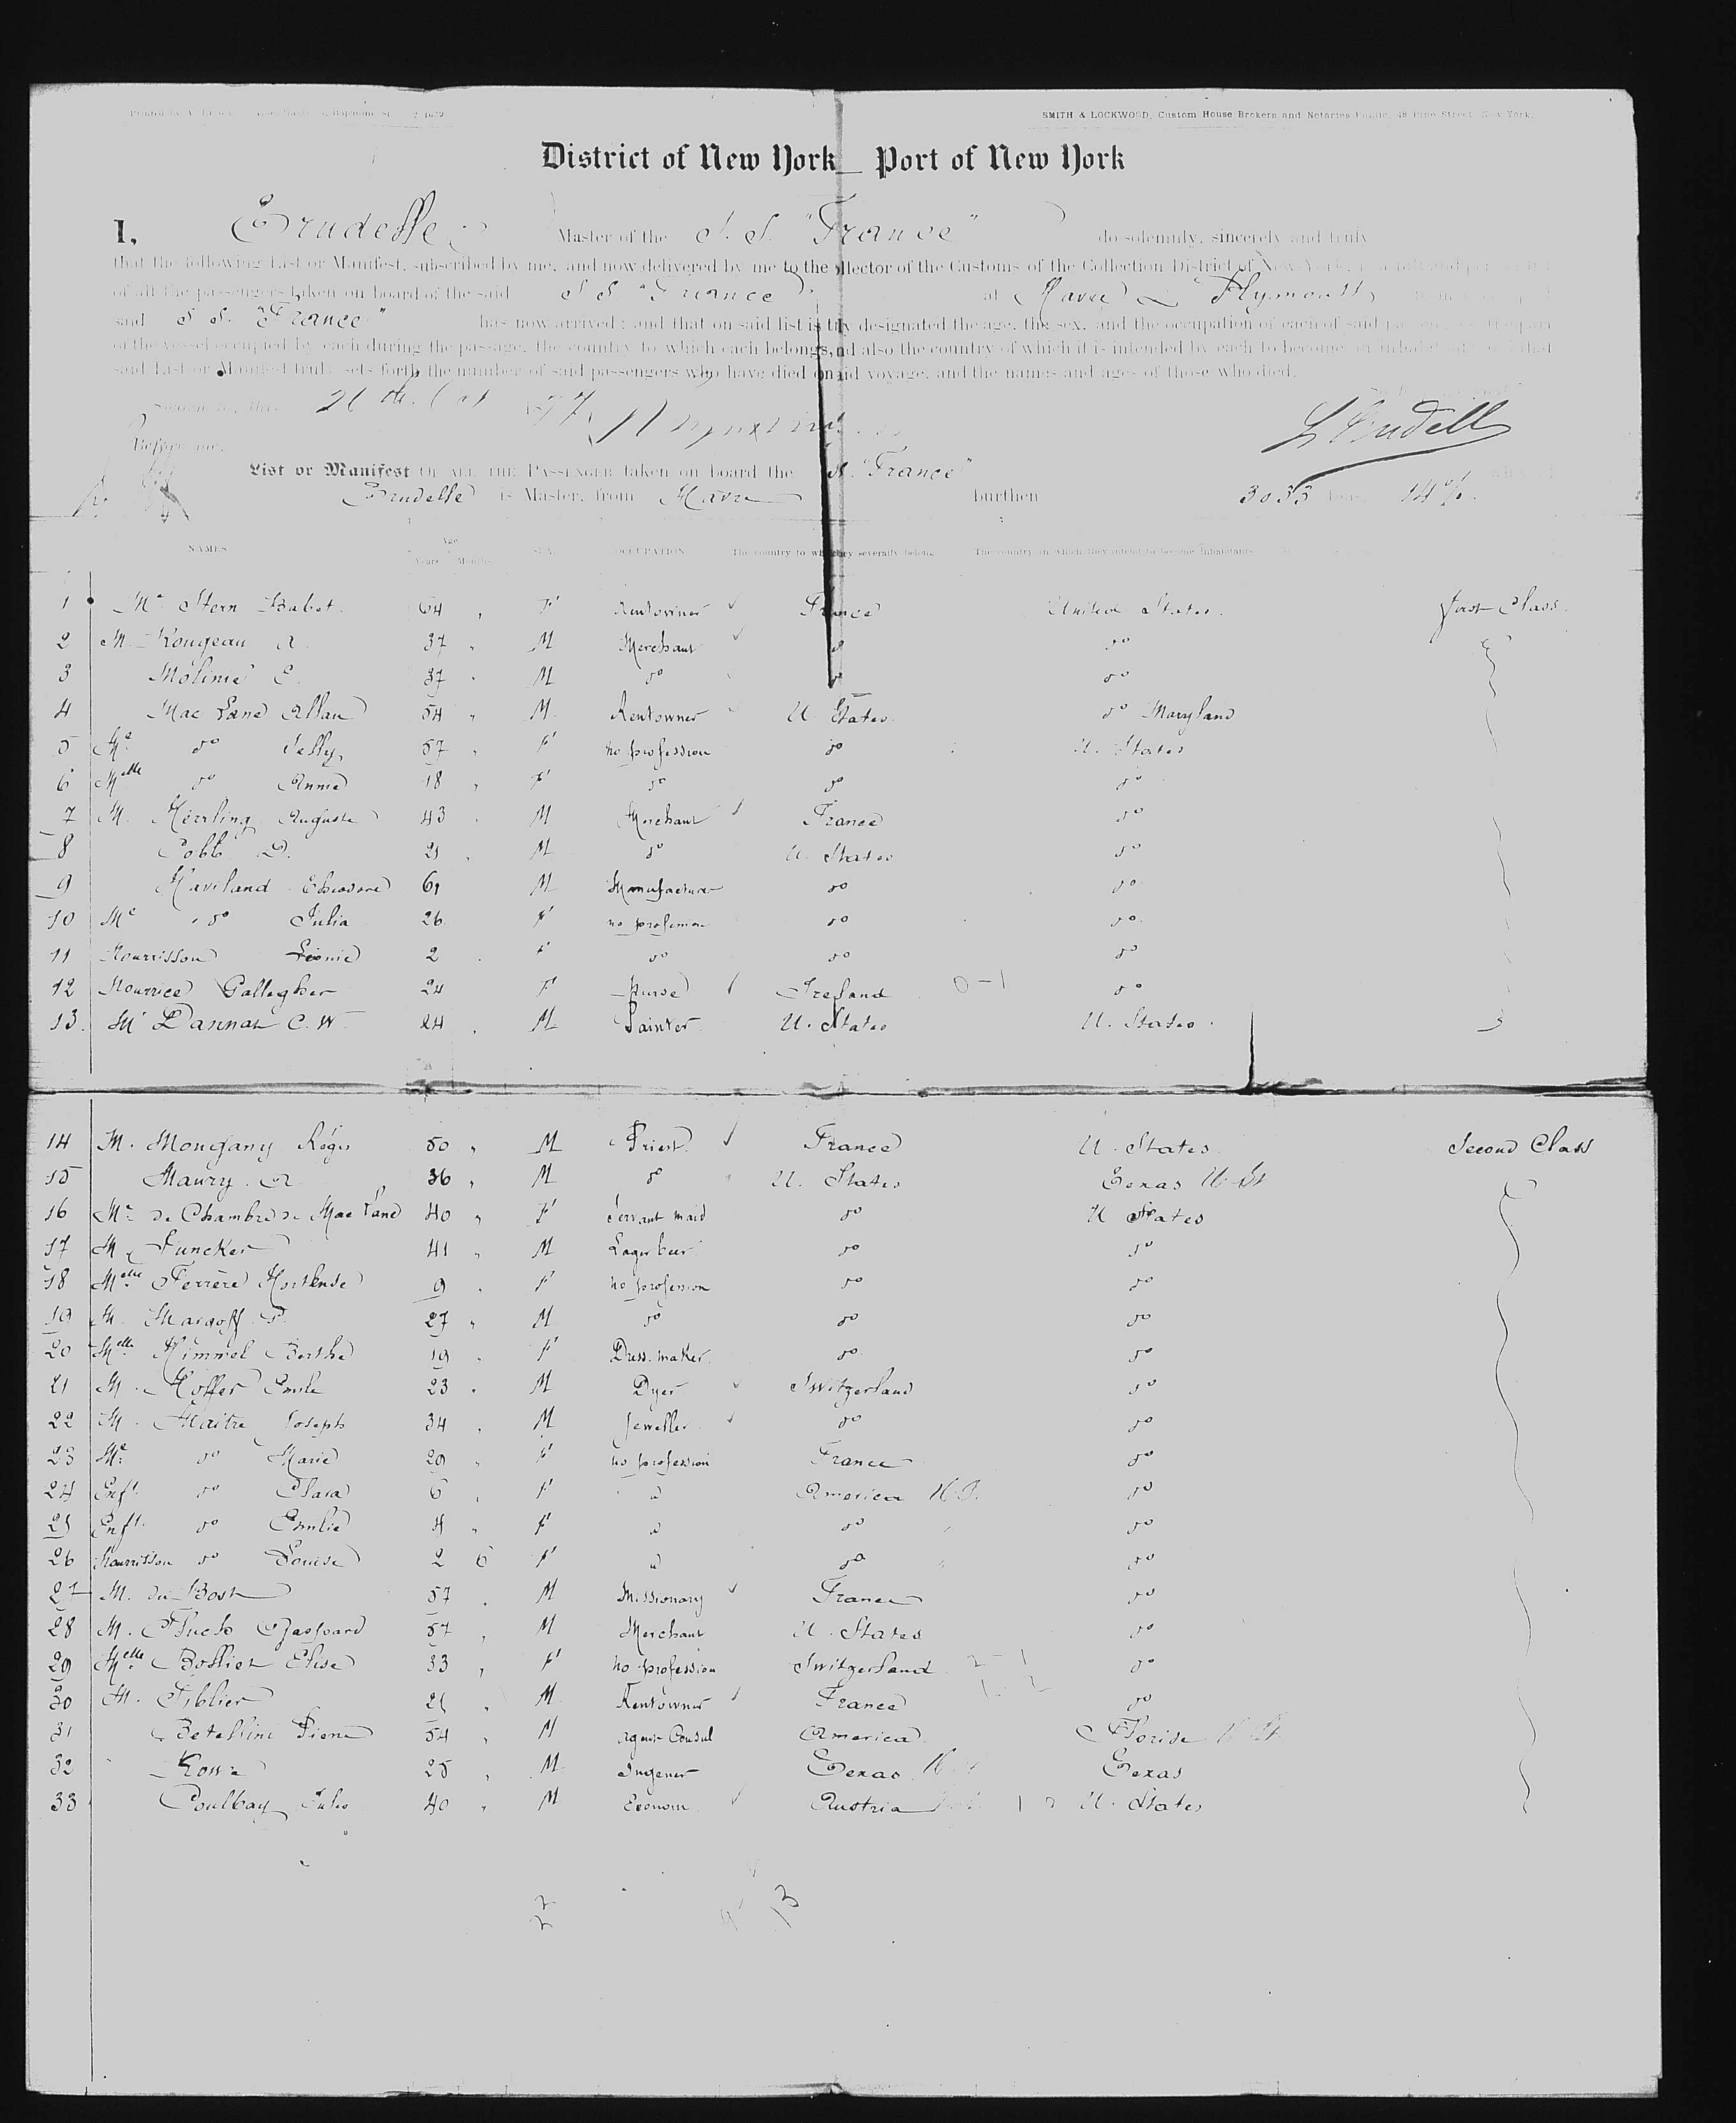 SMITH & LOCKWOOD, Custom House Brokers and Notaries Public, 48 Pine Street, New York.
District of New York Port of New York
I, Trudelle Master of the S. S. "France" do solemnly, sincerely and truly
that the following List or Manifest, subscribed by me, and now delivered by me to the Collector of the Customs of the Collection District of New York,
of all the passengers taken on board of the said S S "France" at Havre & Plymouth
said S S. "France" has now arrived; and that on said list is truly designated the age, the sex, and the occupation of each of said
of the vessel occupied by each during the passage, the country to which each belongs, and also the country of which it is intended by each to become
said List or Manifest truly sets forth the number of said passengers who have died on said voyage, and the names and ages of those who died.
26th Oct
Before me,
L Trudell
List or Manifest OF ALL THE PASSENGERS taken on board the "France"
Trudelle is Master, from Havre burthen 3033
NAMES Age Years Months SEX OCCUPATION The country to which they severally belong The country in which they intend to become inhabitants
1 Me Stern Babet 64 " F Rentowner France United States. first Class.
2 M. Rougeau A 37 " M Merchant do do
3 Molinié E. 37 " M do do do
4 Mac Lane Allan 54 " M Rentowner U States do Maryland
5 Me do 57 " F no profession do U. States
6 Melle do Annie 18 " F do do do
7 M. Herrling Auguste 43 " M Merchant France do
8 Cobb D. 21 " M do U. States do
9 Haviland Theodore 61 M Manufacturer do do
10 Me do Julia 26 F no profession do do
11 Nourrisson Léonie 2 F do do do
12 Nourrice Gallegher 24 F Nurse Ireland 0-1 do
13. M Dannat C. W. 24 " M Painter U. States U. States.
14 M. Mongany Régis 50 " M Priest France U. States Second Class
15 Maury. A 36 " M do U. States Texas U St
16 Me de Chambre de Mac Lane 40 " F Servant maid do U States
17 M. Funcker 41 " M Lager beer do do
18 Melle Ferrère Hortense 9 " F no profession do do
19 M. Margoff P. 27 " M do do do
20 Melle Himmel Berthe 19 " F Dress maker do do
21 M. Hoffer Emile 23 " M Dyer Switzerland do
22 M. Maitre Joseph 34 " M Jeweller do do
23 Me do Marie 29 " F no profession France do
24 Enft do Clara 6 " F America U.S. do
25 Enft do Emilie 4 " F do do
26 Nourrisson do Louise 2 6 F do do
27 M. du Bost 57 " M Missionary France do
28 M. Fluchs Gaspard 57 " M Merchant U. States do
29 Melle Bollier Elise 33 " F no profession Switzerland do
30 M. Tiblier 21 " M Rentowner France do
31 Betellini Pierre 54 " M Agent Consul America Floride U St
32 25 " M Ingener Texas Texas
33 Coulbay Jules 40 " M Econom Austria U. States